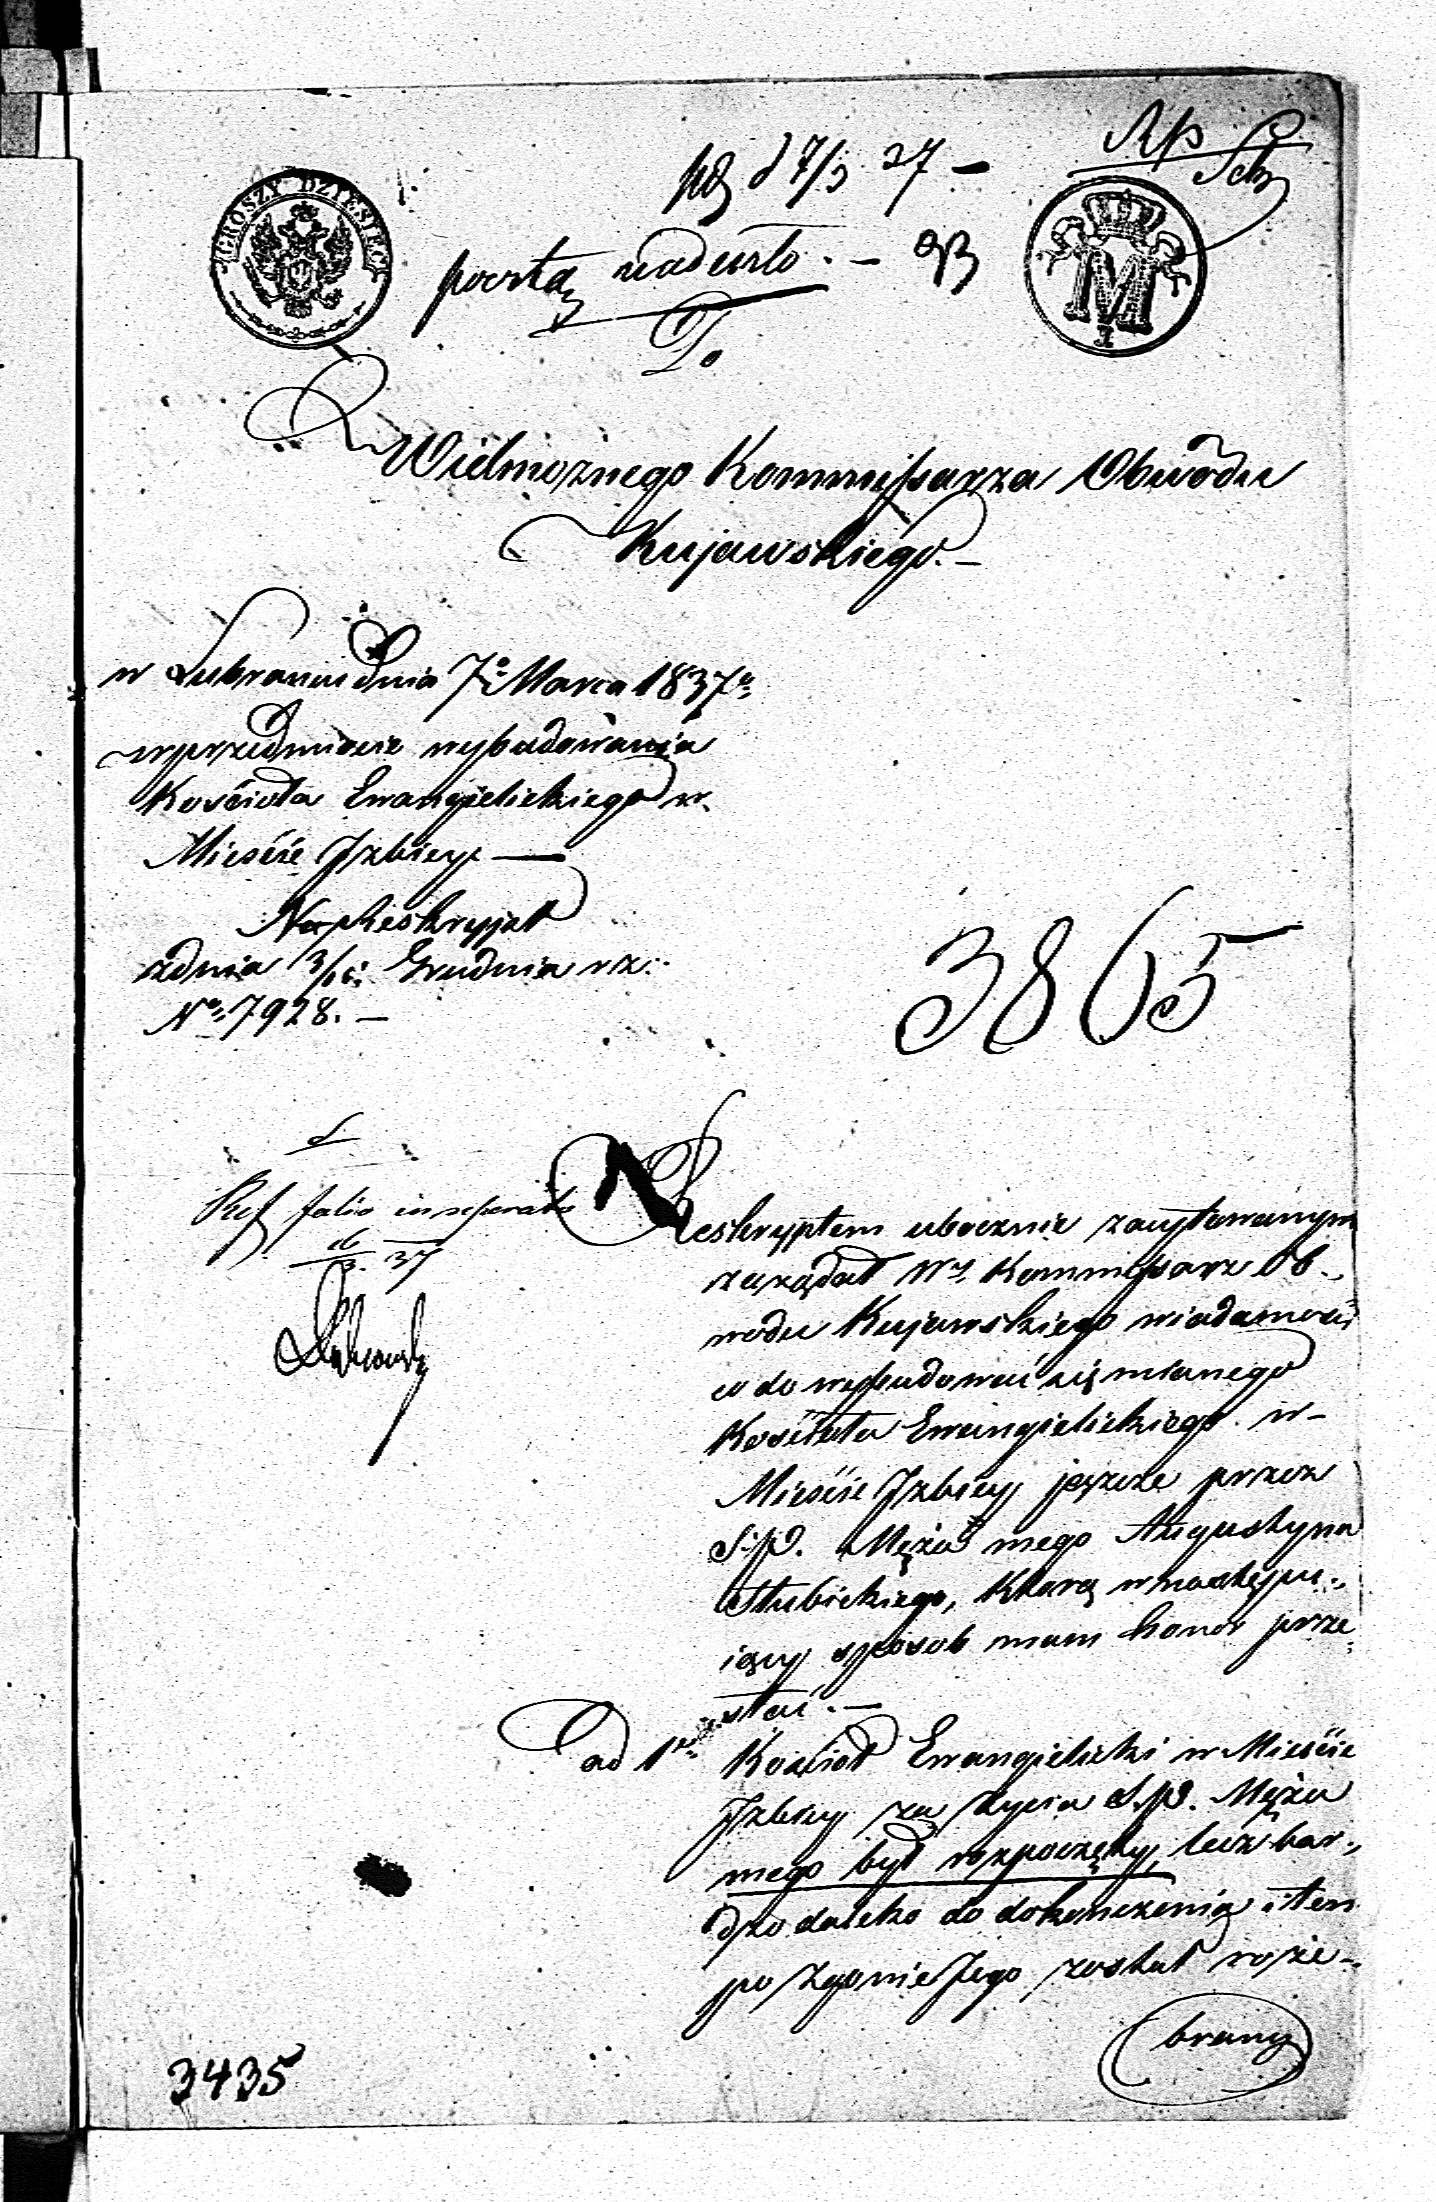 Rp
Sch
d 7/3 37 —
GROSZY DZIESIĘĆ
M
pocztą nadeszło. —
Do
Wielmożnego Kommissarza Obwodu
Kujawskiego. —
w Lubraniu dnia 7o Marca 1837r.
w przedmiocie wybudowania
Kościoła Ewangielickiego w
Mieście Izbicy —
Na Reskrypt
z dnia 3/15 Grudnia r. z.
No 7928. —
3865
Ref folio inseparato
16/3. 37
Reskryptem ubocznie zacytowanym
zażądał Wy. Kommissarz Ob-
wodu Kujawskiego wiadomości
co do wybudować się mianego
Kościoła Ewangielickiego w
Mieście Izbicy jeszcze przez
S. p. Męża mego Augustyna
Słubickiego, którą w następu-
iący sposób mam honor prze-
słać. —
ad 1m Kościoł Ewangielicki w Mieście
Izbicy za życia S. p. Męża
mego był rozpoczęty, lecz bar-
dzo daleko do dokończenia i ten
po zgonie Jego został roze-
brany
3435